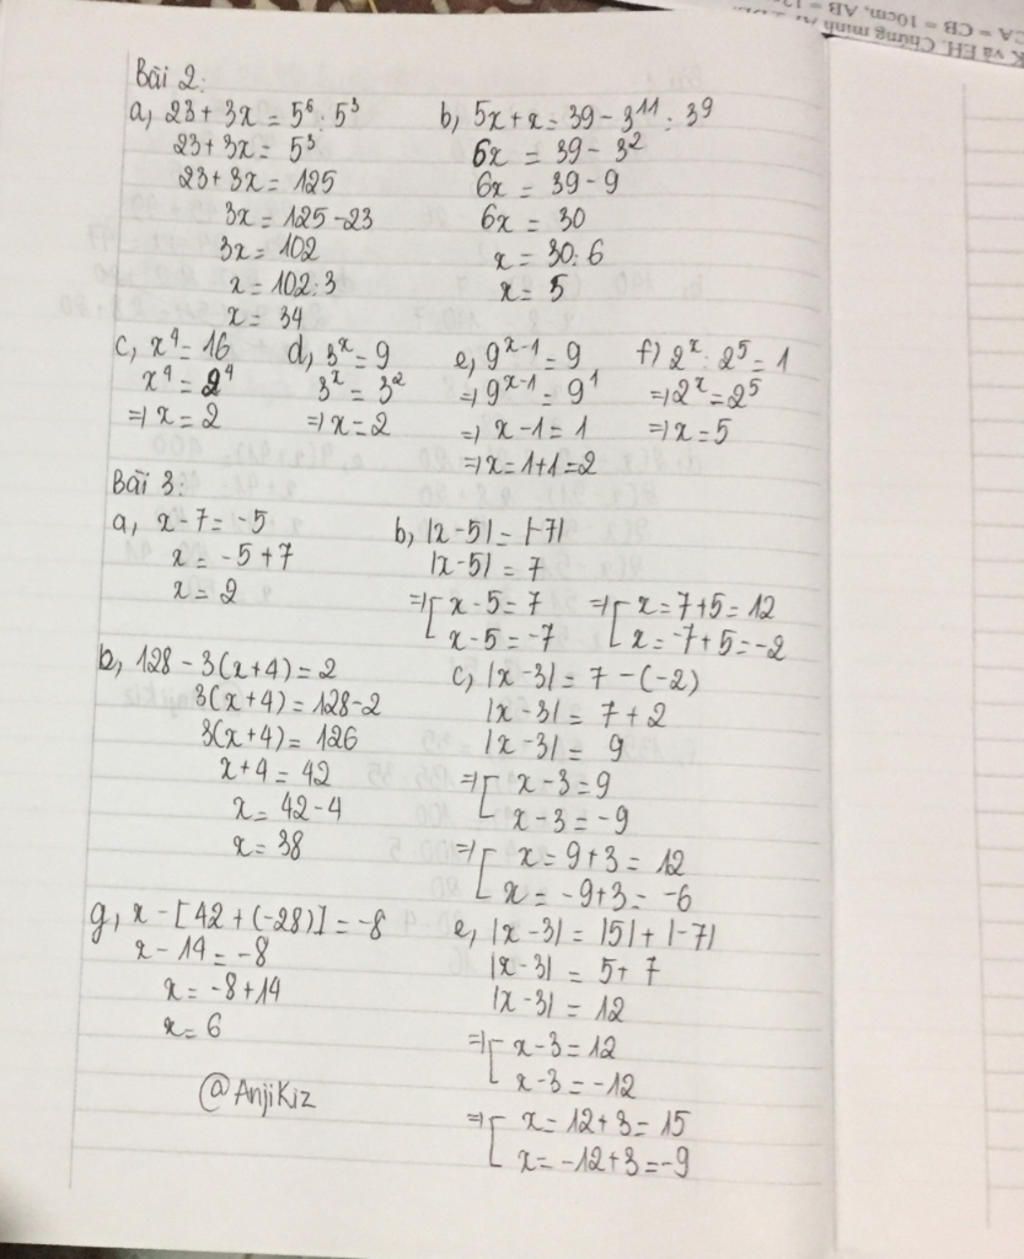 CA = CB = 10cm, AB = 12
K và EH. Chứng minh
Bài 2:
a, 23 + 3x = 5⁶ : 5³
23 + 3x = 5³
23 + 3x = 125
3x = 125 - 23
3x = 102
x = 102 : 3
x = 34
b, 5x + x = 39 - 3¹¹ : 3⁹
6x = 39 - 3²
6x = 39 - 9
6x = 30
x = 30 : 6
x = 5
c, x⁴ = 16
x⁴ = 2⁴
=> x = 2
d, 3ˣ = 9
3ˣ = 3²
=> x = 2
e, 9ˣ⁻¹ = 9
=> 9ˣ⁻¹ = 9¹
=> x - 1 = 1
=> x = 1 + 1 = 2
f) 2ˣ : 2⁵ = 1
=> 2ˣ = 2⁵
=> x = 5
Bài 3:
a, x - 7 = -5
x = -5 + 7
x = 2
b, |x - 5| = |-7|
|x - 5| = 7
=> [ x - 5 = 7 => [ x = 7 + 5 = 12
x - 5 = -7 x = -7 + 5 = -2
b, 128 - 3(x + 4) = 2
3(x + 4) = 128 - 2
3(x + 4) = 126
x + 4 = 42
x = 42 - 4
x = 38
c, |x - 3| = 7 - (-2)
|x - 3| = 7 + 2
|x - 3| = 9
=> [ x - 3 = 9
x - 3 = -9
=> [ x = 9 + 3 = 12
x = -9 + 3 = -6
g, x - [42 + (-28)] = -8
x - 14 = -8
x = -8 + 14
x = 6
e, |x - 3| = |5| + |-7|
|x - 3| = 5 + 7
|x - 3| = 12
=> [ x - 3 = 12
x - 3 = -12
=> [ x = 12 + 3 = 15
x = -12 + 3 = -9
@AnjiKiz